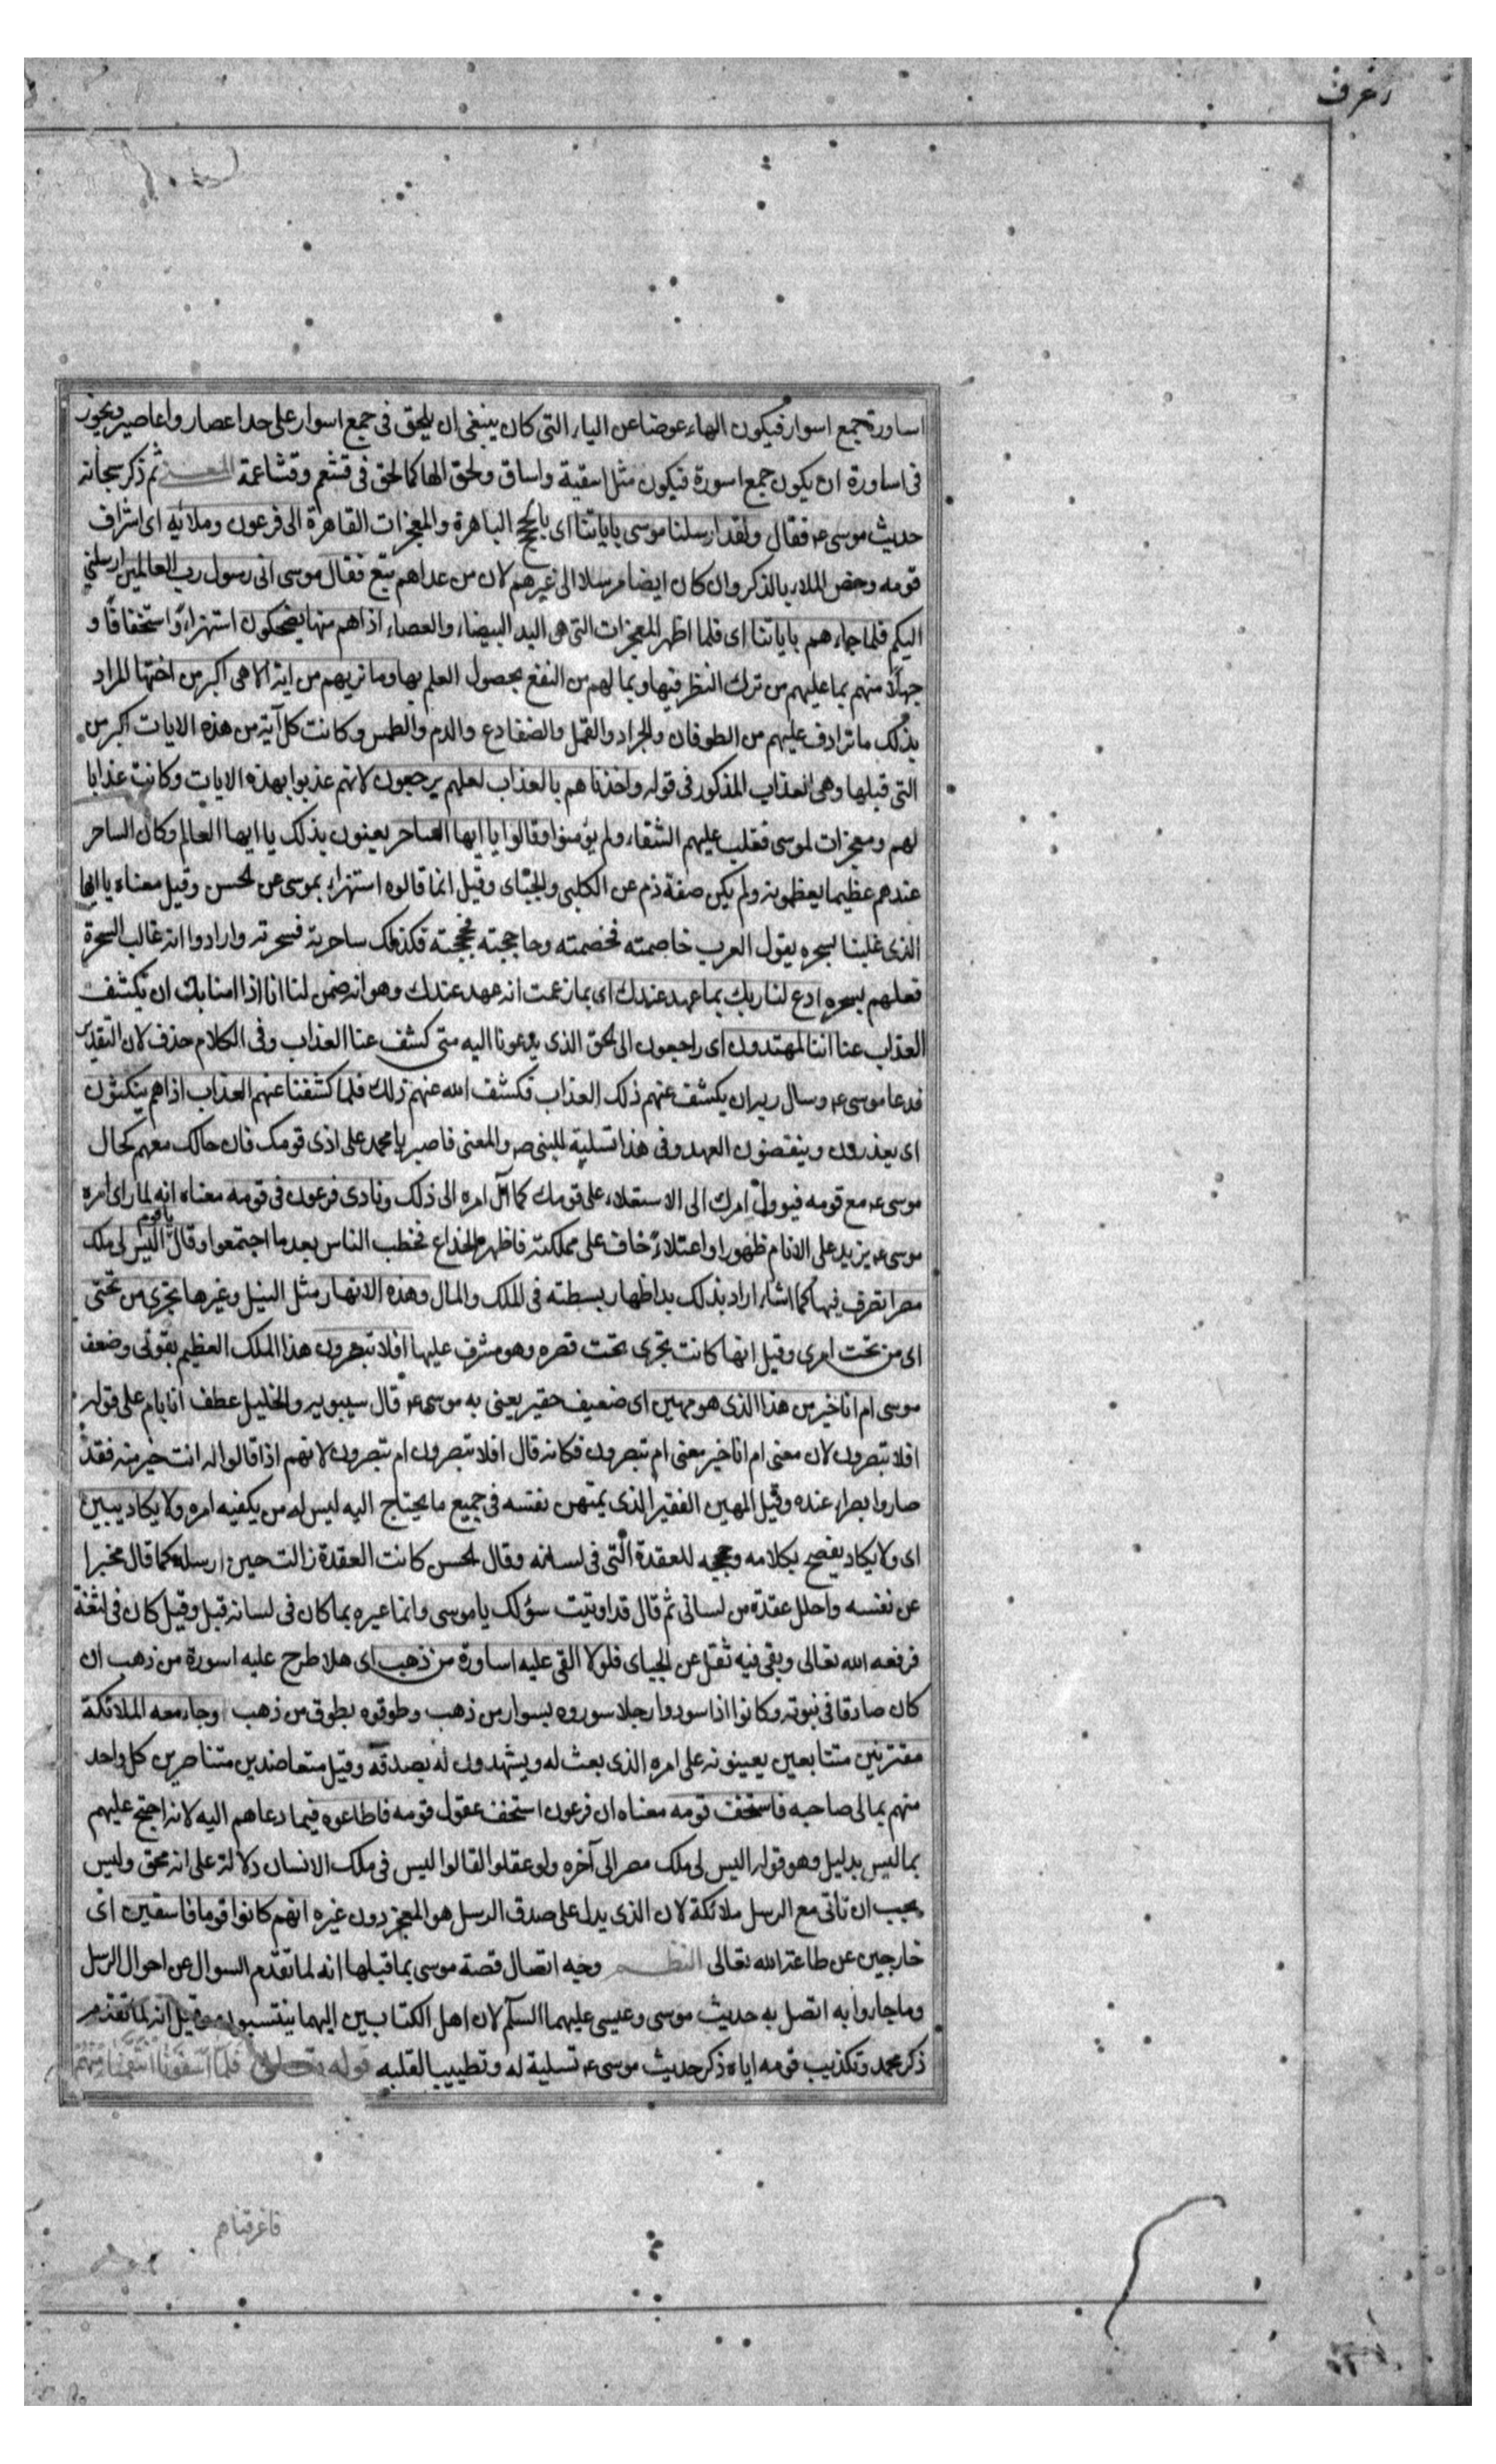 زخرف
اساورة جمع اسوار فيكون الهاء عوضا عن الياء التى كان ينبغى ان يلحق فى جمع اسوار على حد اعصار واعاصير ويجوز
فى اساورة ان يكون جمع اسورة فيكون مثل اسقية واساق ولحق الها كما لحق فى قشعم وقشاعمة المعنى ثم ذكر سبحانه
حديث موسى ع فقال ولقد ارسلنا موسى باياتنا اى بالحجج الباهرة والمعجزات القاهرة الى فرعون وملائه اى اشراف
قومه وخص الملاء بالذكر وان كان ايضا مرسلا الى غيرهم لان من عداهم تبع فقال موسى انى رسول رب العالمين ارسلنى
اليكم فلما جاءهم باياتنا اى فلما اظهر المعجزات التى هى اليد البيضاء والعصاء اذا هم منها يضحكون استهزاءً واستخفافًا و
جهلًا منهم بما عليهم من ترك النظر فيها وبما لهم من النفع بحصول العلم بها وما نريهم من اية الا هى اكبر من اختها المراد
بذلك ما ترادف عليهم من الطوفان والجراد والقمل والضفادع والدم والطمس وكانت كل آية من هذه الايات اكبر من
التى قبلها وهى العذاب المذكور فى قوله واخذناهم بالعذاب لعلهم يرجعون لانهم عذبوا بهذه الايات وكانت عذابا
لهم ومعجزات لموسى فغلب عليهم الشقاء ولم يؤمنوا وقالوا يا ايها الساحر يعنون بذلك يا ايها العالم وكان الساحر
عندهم عظيما يعظمونه ولم يكن صفة ذم عن الكلبى والجبائى وقيل انما قالوه استهزاء بموسى عن الحسن وقيل معناه يا ايها
الذى غلبنا بسحره يقول العرب خاصمته فخصمته وحاججته فحججته فكذلك ساحرته فسحرته وارادوا انه غالب السحرة
فعلهم بسحره ادع لنا ربك بما عهد عندك اى بما زعمت انه عهد عندك وهو انه ضمن لنا انا اذا امنا بك ان تكشف
العذاب عنا اننا لمهتدون اى راجعون الى الحق الذى يدعونا اليه متى كشف عنا العذاب وفى الكلام حذف لان التقدير
فدعا موسى ع وسال ربه ان يكشف عنهم ذلك العذاب فكشف الله عنهم ذلك فلما كشفنا عنهم العذاب اذا هم ينكثون
اى يغدرون وينقضون العهد وفى هذا تسلية للنبى ص والمعنى فاصبر يا محمد على اذى قومك فان حالك معهم كحال
موسى ع مع قومه فيوول امرك الى الاستعلاء على قومك كما آل امره الى ذلك ونادى فرعون فى قومه معناه انه لما راى امره
موسى ع يزيد على الايام ظهورا واعتلاءً خاف على مملكته فاظهر الخداع فخطب الناس بعد ما اجتمعوا وقال يا قوم اليس لى ملك
مصر اتصرف فيها كما اشاء اراد بذلك اظهار بسطته فى الملك والمال وهذه الانهار مثل النيل وغيرها تجرى من تحتى
اى من تحت امرى وقيل انها كانت تجرى تحت قصره وهو مشرف عليها افلا تبصرون هذا الملك العظيم بقوتى وضعف
موسى ام انا خير من هذا الذى هو مهين اى ضعيف حقير يعنى به موسى ع قال سيبويه والخليل عطف انا بام على قوله
افلا تبصرون لان معنى ام انا خير معنى ام تبصرون فكانه قال افلا تبصرون ام تبصرون لانهم اذا قالوا له انت خير منه فقد
صاروا بصراء عنده وقيل المهين الفقير الذى يمتهن نفسه فى جميع ما يحتاج اليه ليس له من يكفيه امره ولا يكاد يبين
اى ولا يكاد يفصح بكلامه وحججه للعقدة التى فى لسانه وقال الحسن كانت العقدة زالت حين ارسله كما قال مخبرا
عن نفسه واحلل عقدة من لسانى ثم قال قد اوتيت سؤلك يا موسى وانما عيره بما كان فى لسانه قبل وقيل كان فى لثغة
فرفعه الله تعالى وبقى فيه ثقل عن الجبائى فلولا القى عليه اساورة من ذهب اى هلا طرح عليه اسورة من ذهب ان
كان صادقا فى نبوته وكانوا اذا سودوا رجلا سوروه بسوار من ذهب وطوقوه بطوق من ذهب او جاء معه الملائكة
مقترنين متتابعين يعينونه على امره الذى بعث له ويشهدون له بصدقه وقيل متعاضدين متناصرين كل واحد
منهم يمالى صاحبه فاستخف قومه معناه ان فرعون استخف عقول قومه فاطاعوه فيما دعاهم اليه لانه احتج عليهم
بما ليس بدليل وهو قوله اليس لى ملك مصر الى آخره ولو عقلوا لقالوا ليس فى ملك الانسان دلالة على انه محق وليس
يجب ان تاتى مع الرسل ملائكة لان الذى يدل على صدق الرسل هو المعجز دون غيره انهم كانوا قوما فاسقين اى
خارجين عن طاعة الله تعالى النظم وجه اتصال قصة موسى بما قبلها انه لما تقدم السوال عن احوال الرسل
وما جاءوا به اتصل به حديث موسى وعيسى عليهما السلم لان اهل الكتابين اليهما ينتسبون وقيل انه لما تقدم
ذكر محمد وتكذيب قومه اياه ذكر حديث موسى ع تسلية له وتطييبا لقلبه قوله تعالى فلما آسفونا انتقمنا منهم
فاغرقناهم